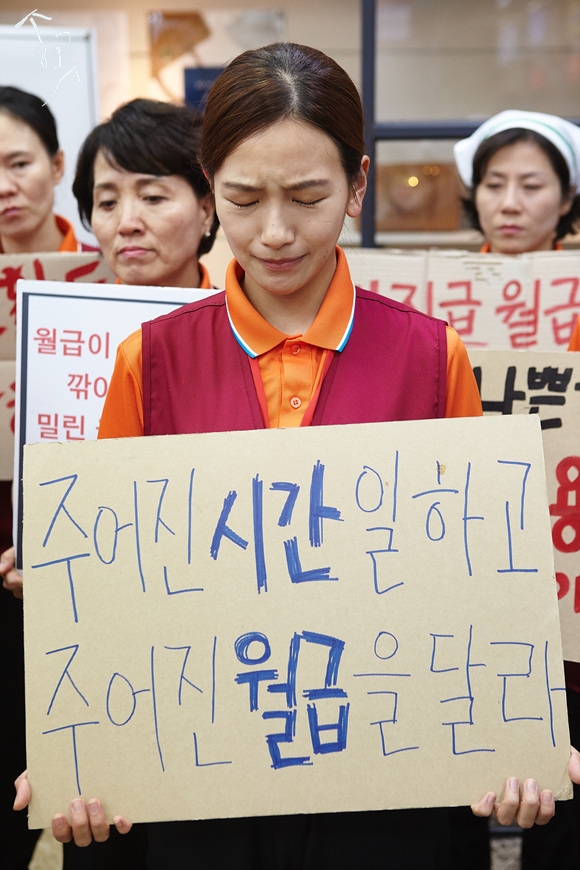 주어진 시간 일하고
주어진 월급을 달라
월급이
깎이
밀린
월급
나쁜
용